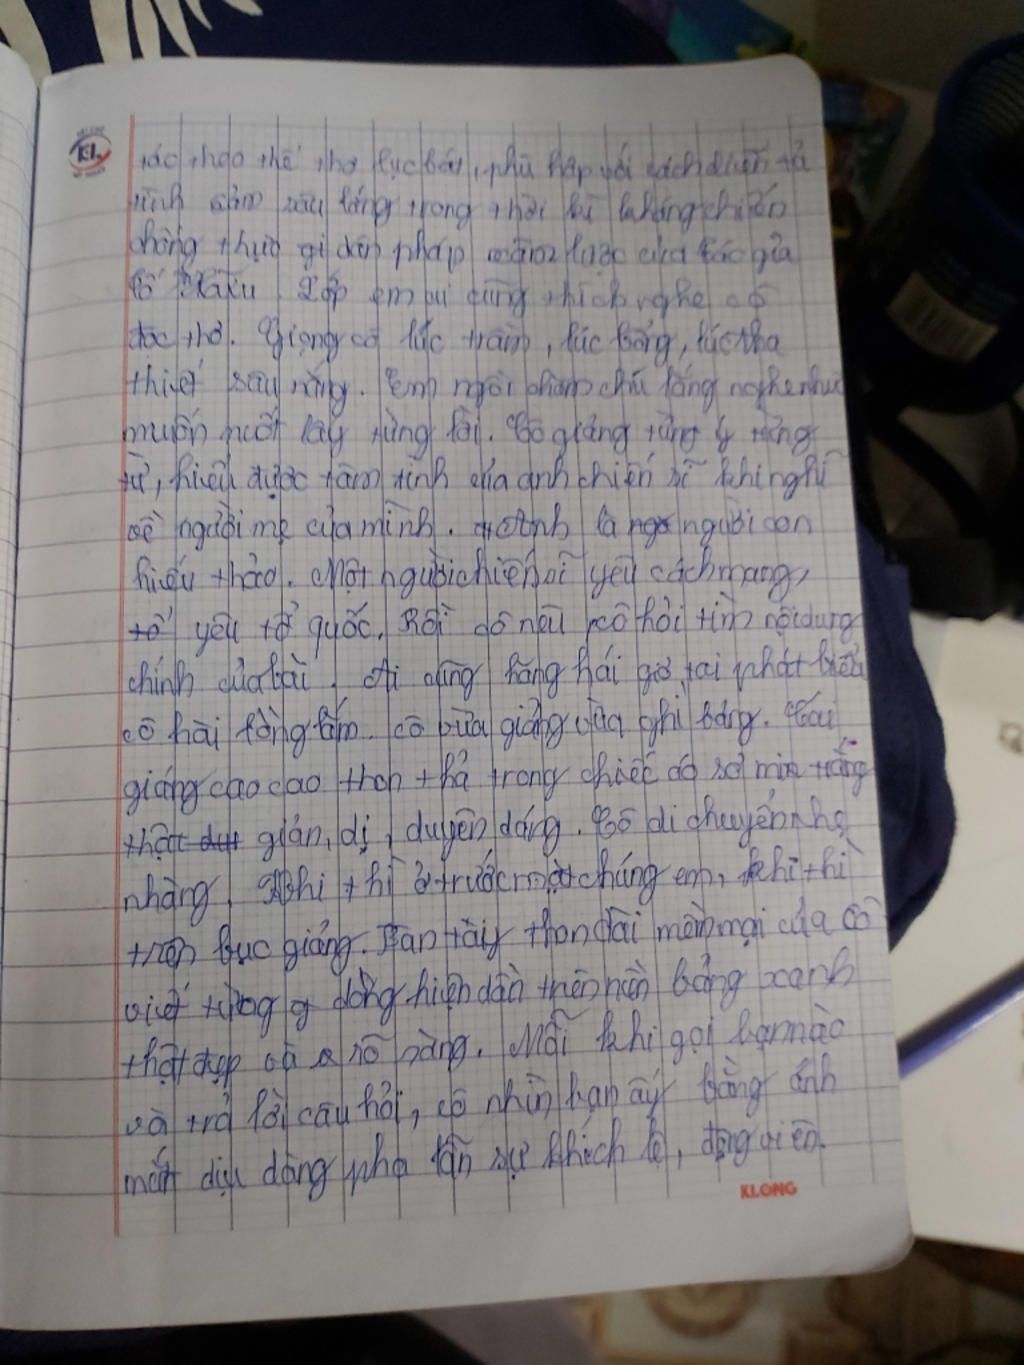 tác theo thể thơ lục bát, phù hợp với cách diễn tả
tình cảm sâu lắng trong thời kì kháng chiến
chống thực dân pháp xâm lược của tác giả
Tố Hữu. Lớp em ai cũng thích nghe cô
đọc thơ. Giọng cô lúc trầm, lúc bổng, lúc tha
thiết sâu nặng. Em ngồi chăm chú lắng nghe như
muốn nuốt lấy từng lời. Cô giảng từng ý từng
từ, hiểu được tâm tình của anh chiến sĩ khi nghĩ
về người mẹ của mình. Anh là người con
hiếu thảo. Một người chiến sĩ yêu cách mạng,
yêu tổ quốc. Rồi cô nêu câu hỏi tìm nội dung
chính của bài. Ai cũng hăng hái giơ tai phát biểu
cô hài lòng lắm. cô vừa giảng vừa ghi bảng. Cái
giáng cao cao thon thả trong chiếc áo sơ mi trắng
thật giản dị, duyên dáng. Cô di chuyển nhẹ
nhàng. Khi thì ở trước mặt chúng em, khi thì
trên bục giảng. Bàn tay thon dài mềm mại của cô
viết từng dòng hiện dần trên nền bảng xanh
thật đẹp và rõ ràng. Mỗi khi gọi bạn nào
và trả lời câu hỏi, cô nhìn bạn ấy bằng ánh
mắt dịu dàng pha lẫn sự khích lệ, động viên.
KLONG